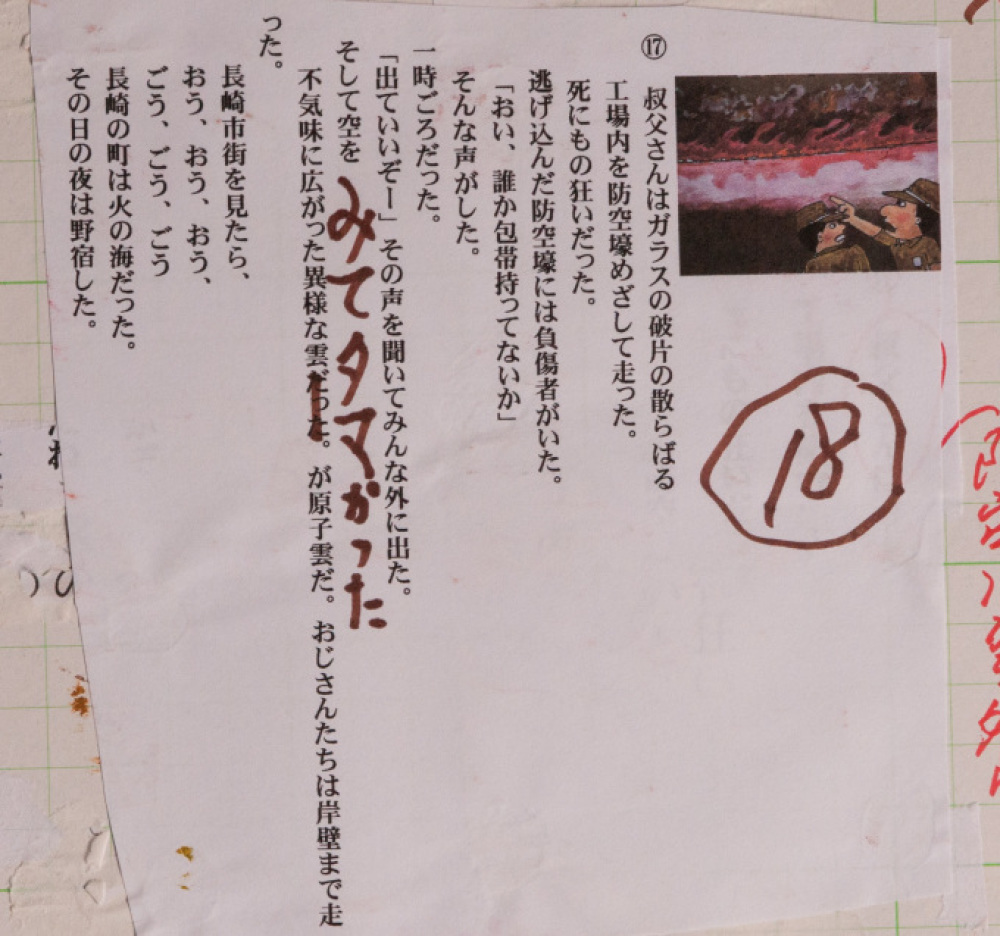 ⑰
叔父さんはガラスの破片の散らばる
工場内を防空壕めざして走った。
死にもの狂いだった。
逃げ込んだ防空壕には負傷者がいた。
「おい、誰か包帯持ってないか」
そんな声がした。
一時ごろだった。
「出ていいぞー」その声を聞いてみんな外に出た。
そして空を
みてタマがった
不気味に広がった異様な雲だった。が原子雲だ。おじさんたちは岸壁まで走
った。
長崎市街を見たら、
おう、おう、おう、
ごう、ごう、ごう
長崎の町は火の海だった。
その日の夜は野宿した。
18